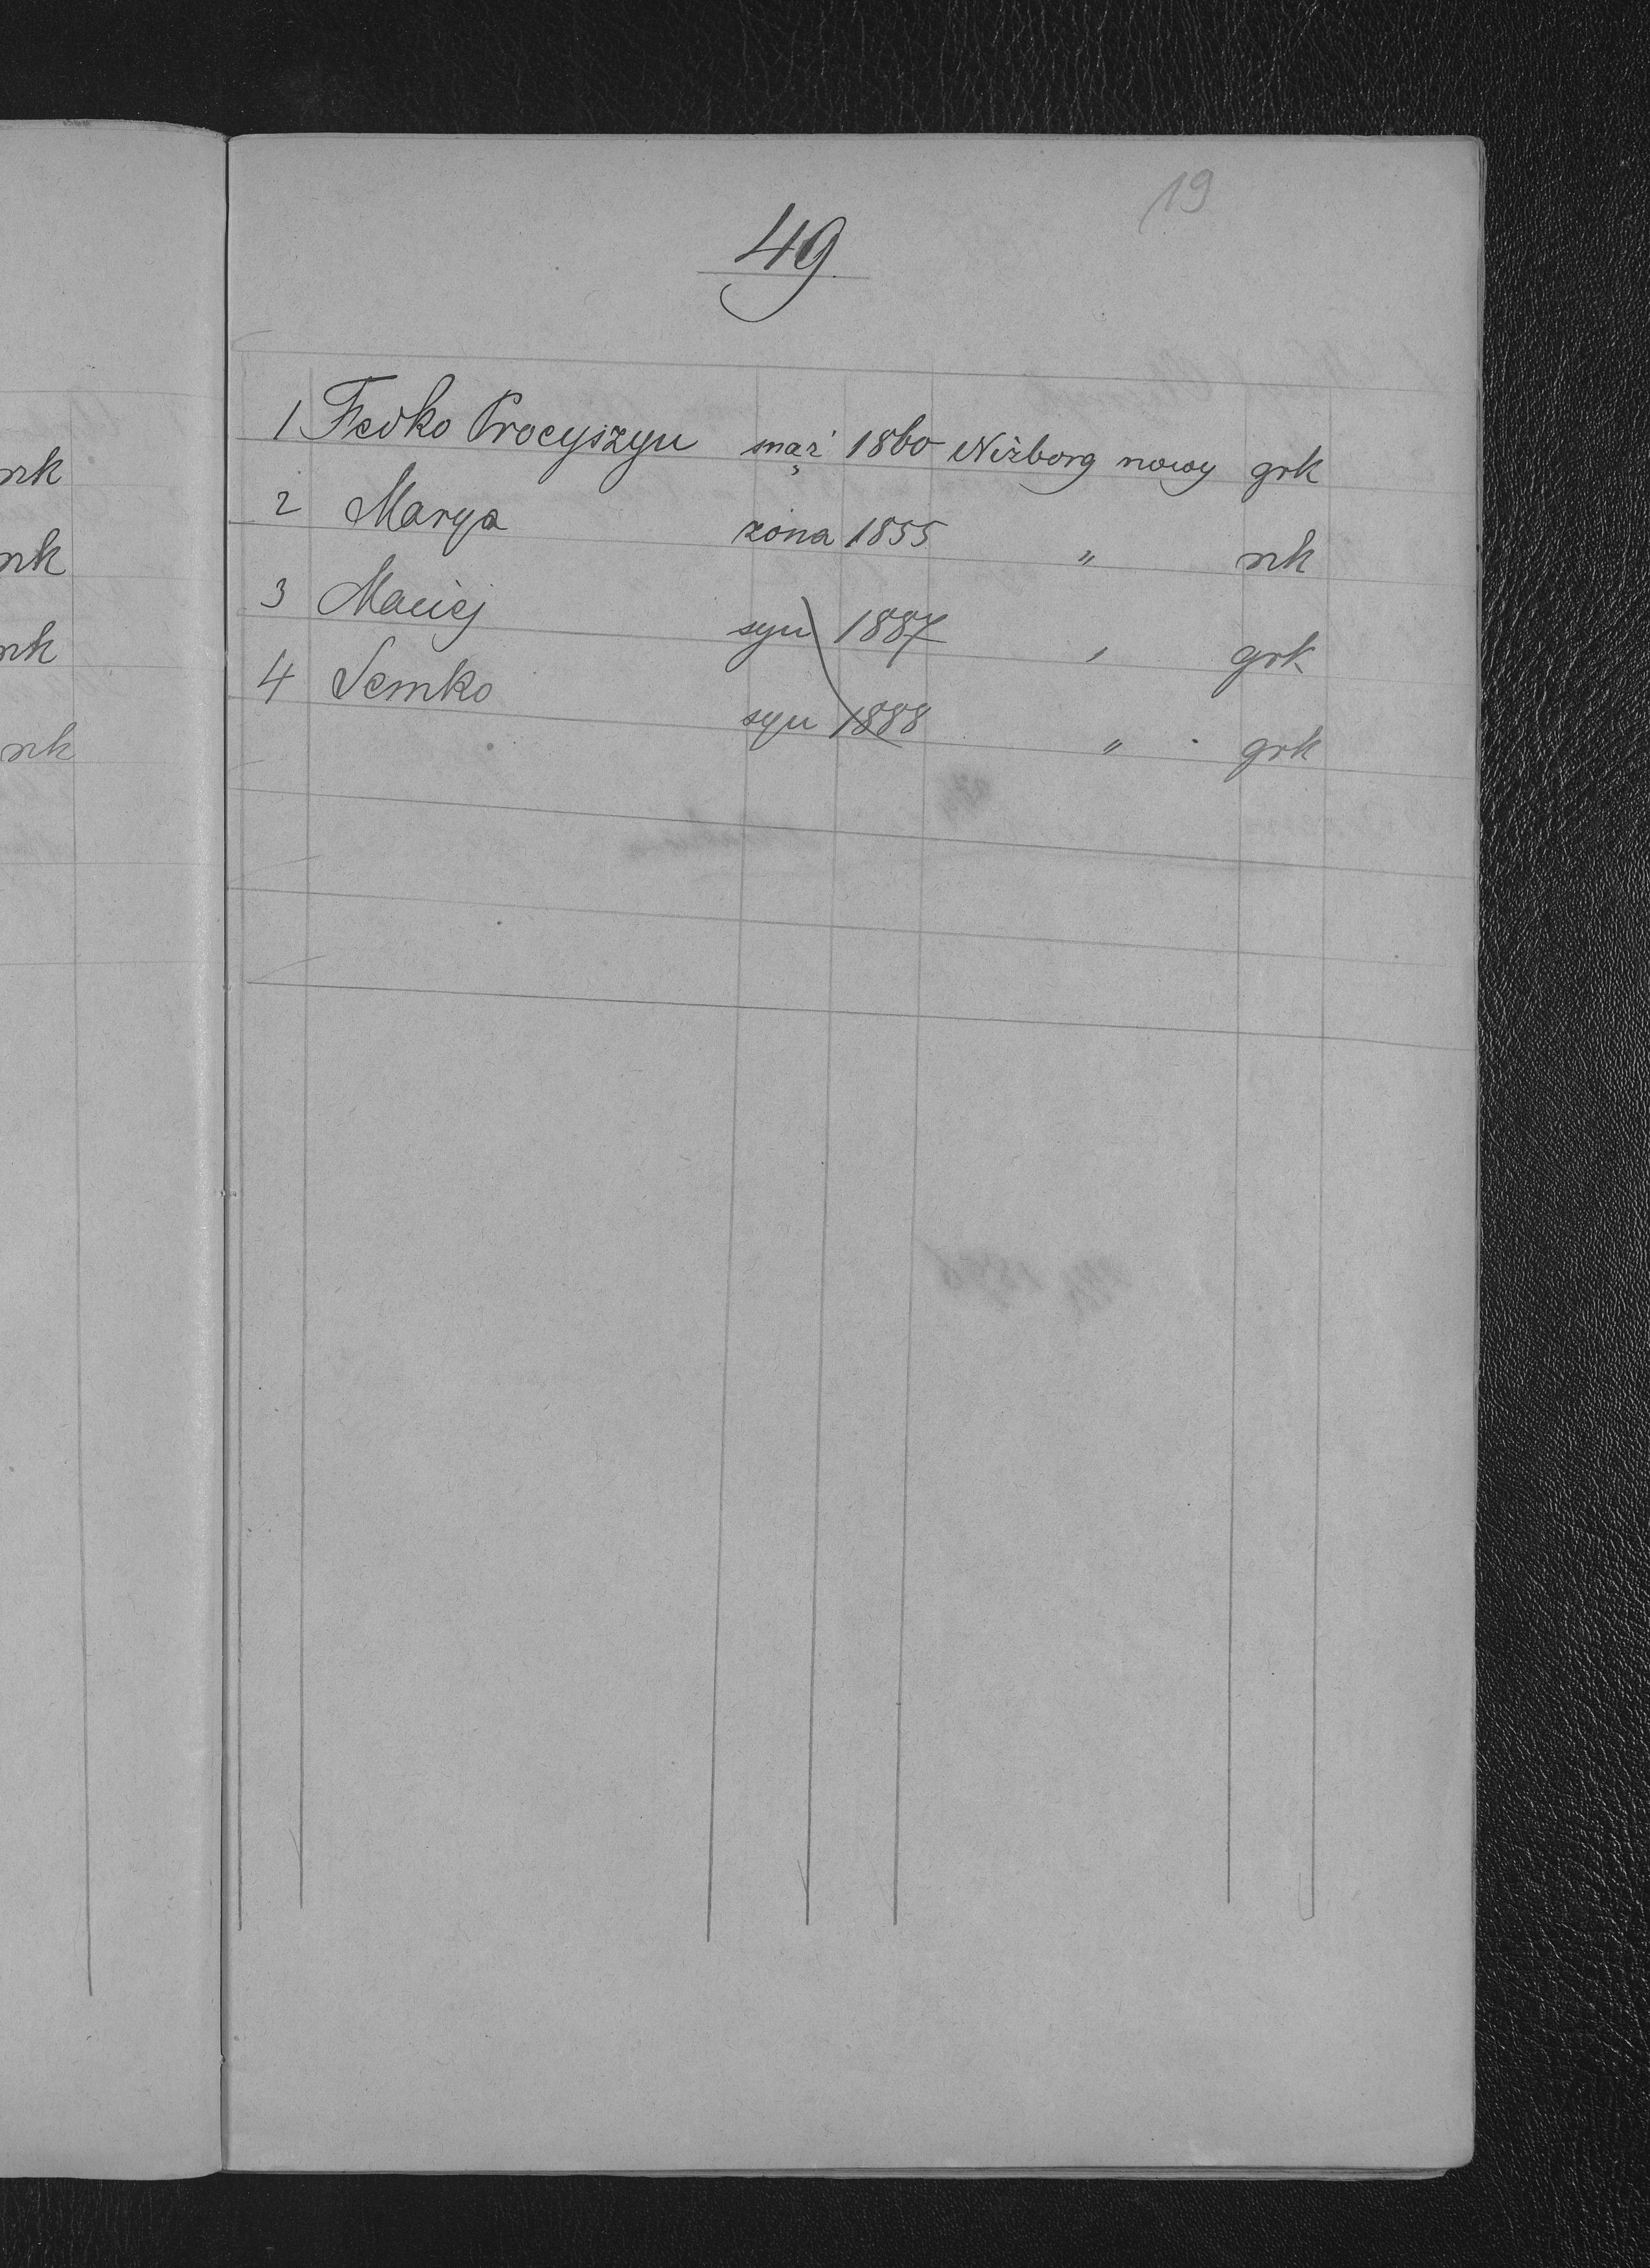 19
49
1 Fedko Procyszyn mąż 1860 Niżborg nowy grk
2 Marya żona 1855 " rk
3 Maciej syn 1887 " grk
4 Semko syn 1888 " grk
rk
rk
rk
rk